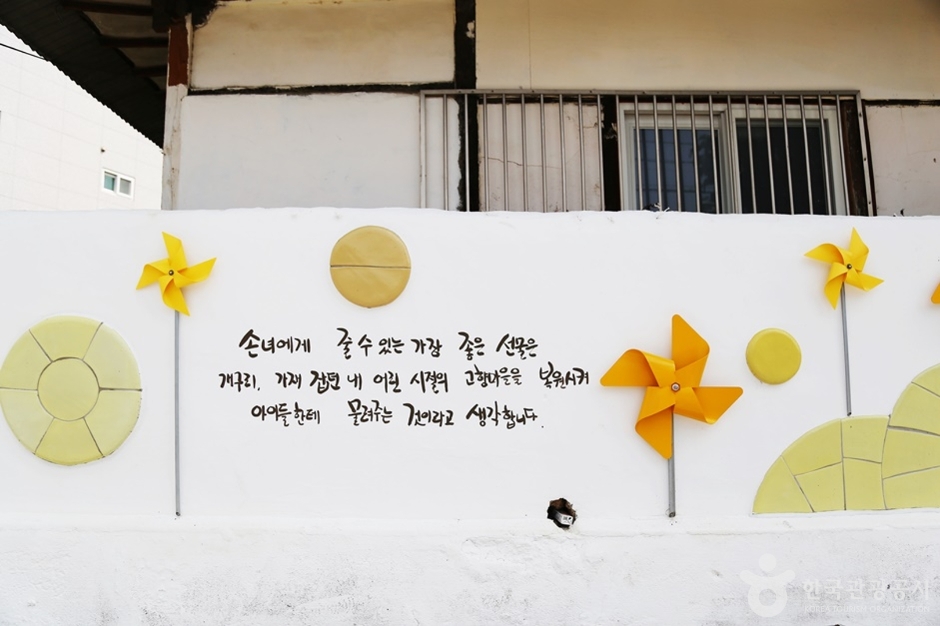 손녀에게 줄 수 있는 가장 좋은 선물은
개구리, 가재 잡던 내 어린 시절의 고향마을을 복원시켜
아이들한테 물려주는 것이라고 생각합니다.
한국관광공사
KOREA TOURISM ORGANIZATION